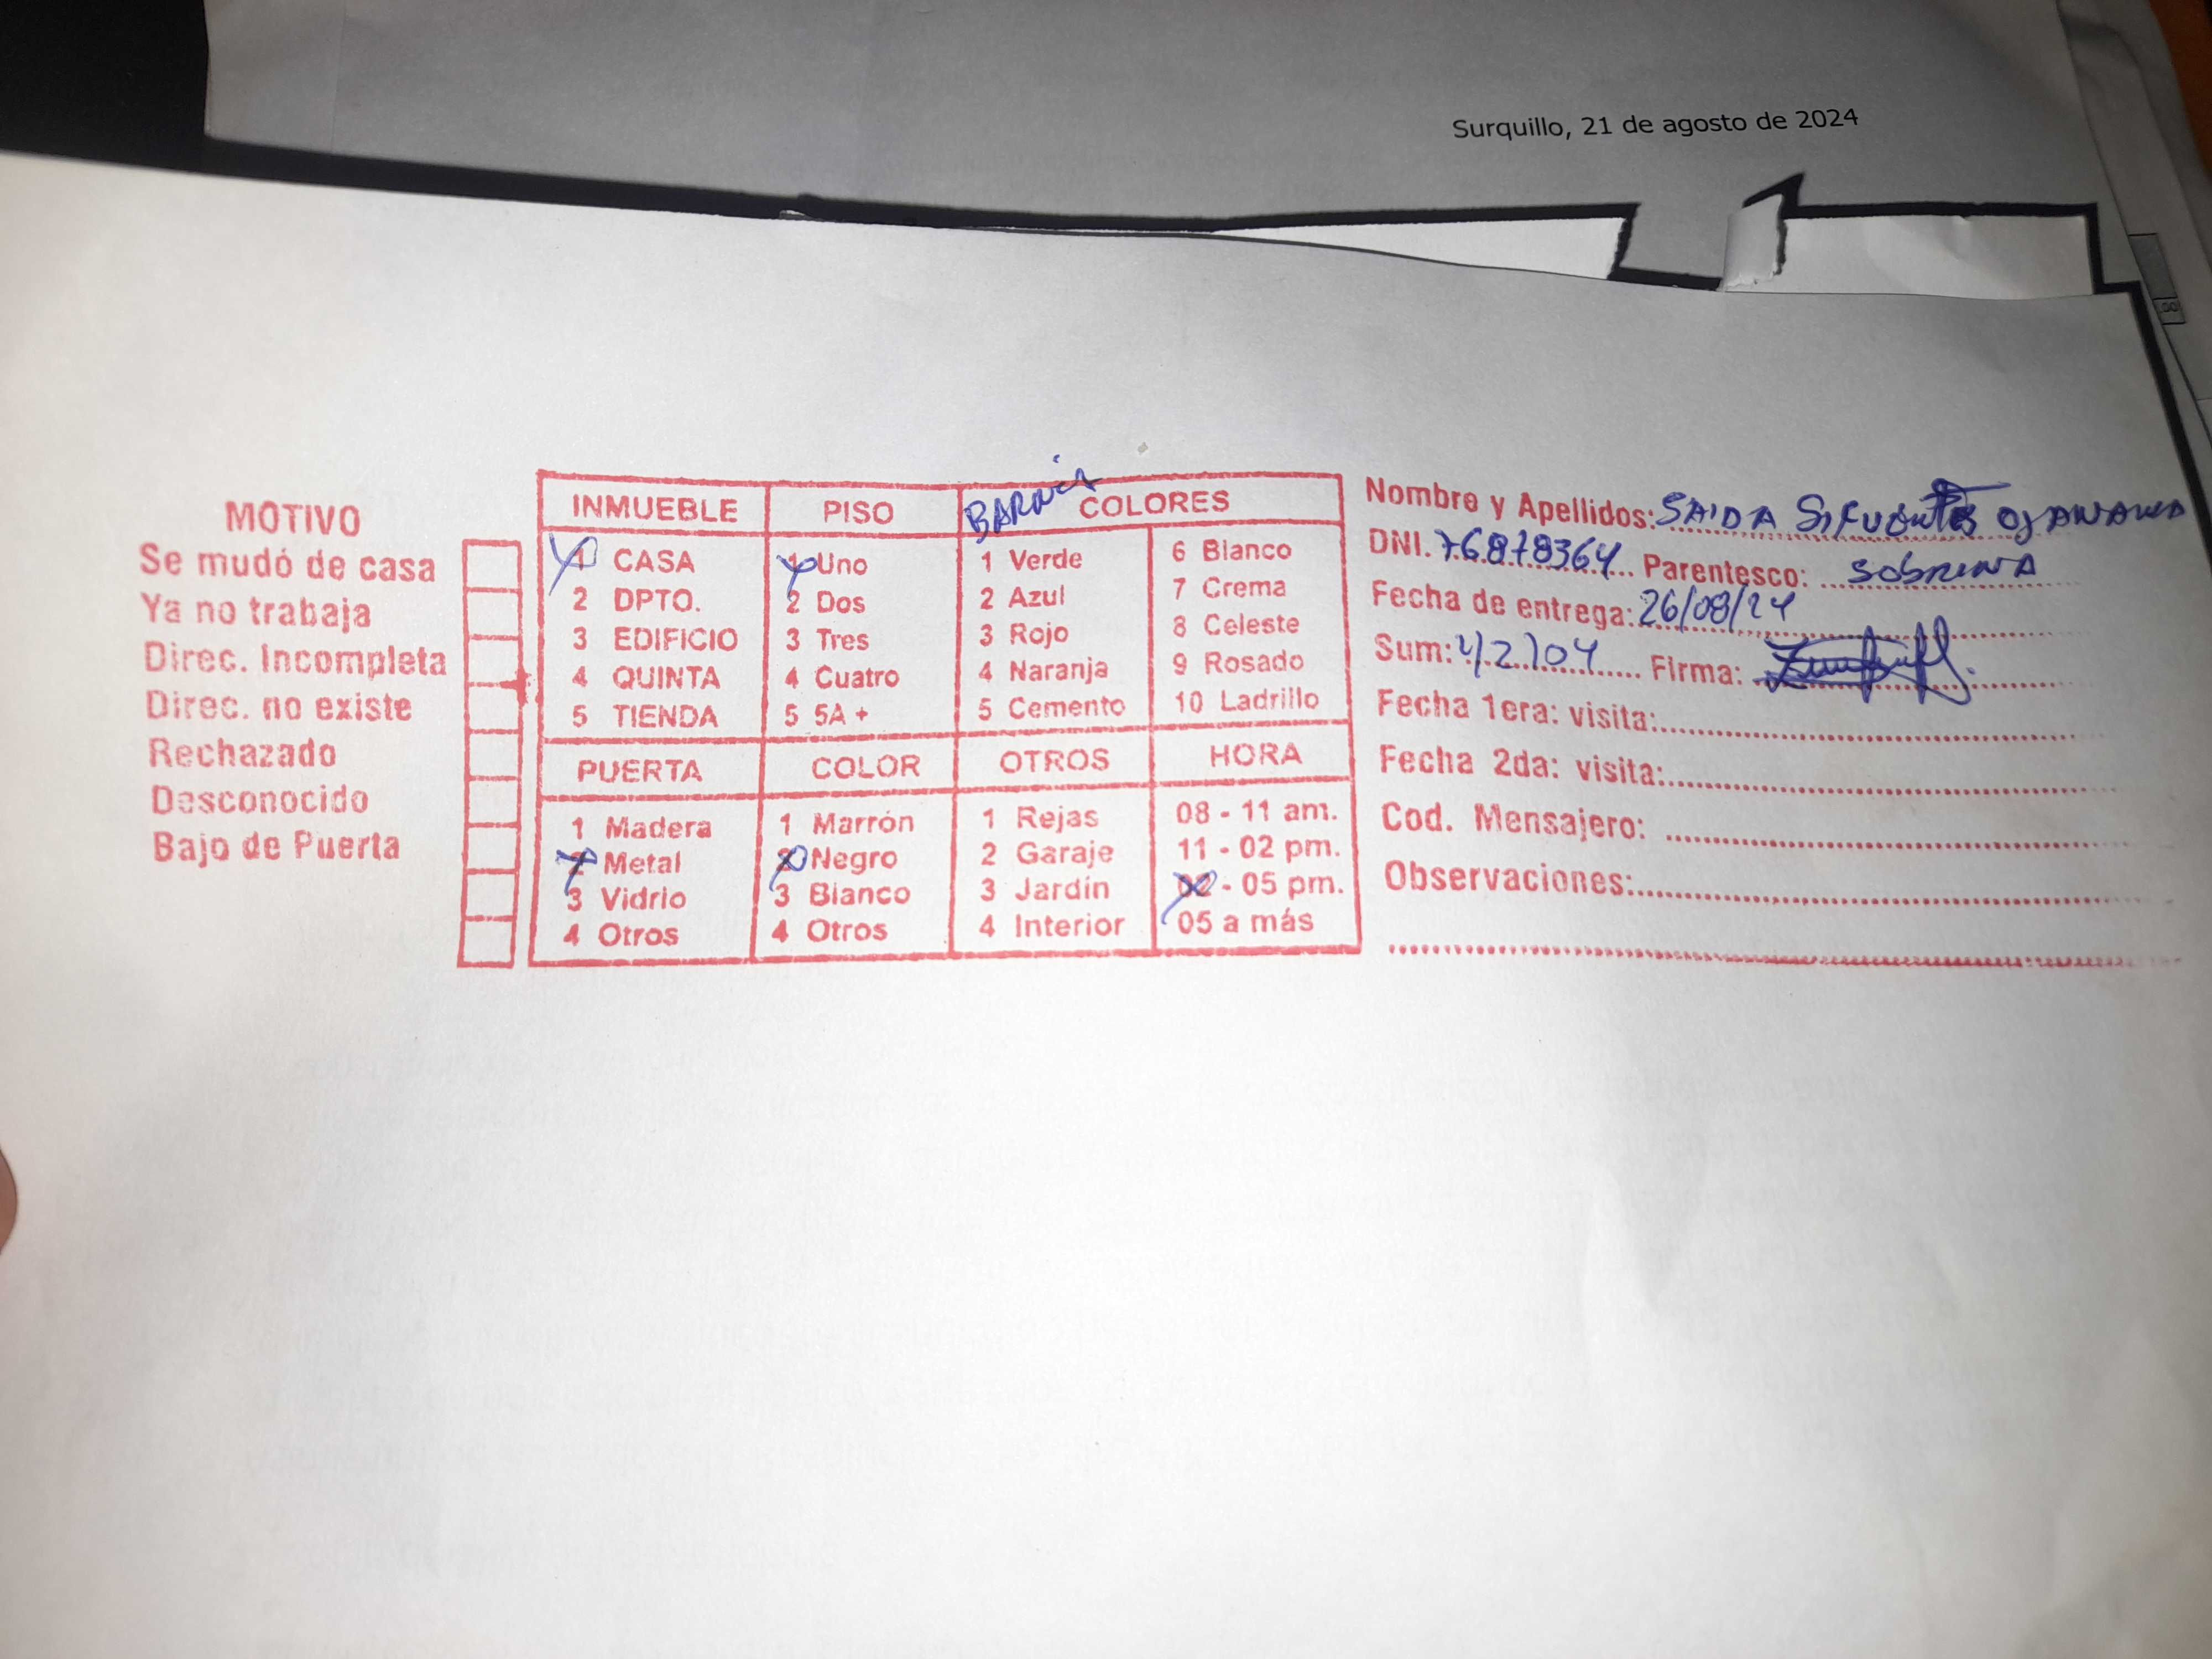 Surquillo, 21 de agosto de 2024
MOTIVO
Se mudó de casa
Ya no trabaja
Direc. Incompleta
Direc. no existe
Rechazado
Desconocido
Bajo de Puerta
INMUEBLE PISO BARNIZ COLORES
1 CASA 1 Uno 1 Verde 6 Blanco
2 DPTO. 2 Dos 2 Azul 7 Crema
3 EDIFICIO 3 Tres 3 Rojo 8 Celeste
4 QUINTA 4 Cuatro 4 Naranja 9 Rosado
5 TIENDA 5 5A + 5 Cemento 10 Ladrillo
PUERTA COLOR OTROS HORA
1 Madera 1 Marrón 1 Rejas 08 - 11 am.
2 Metal 2 Negro 2 Garaje 11 - 02 pm.
3 Vidrio 3 Blanco 3 Jardín 02 - 05 pm.
4 Otros 4 Otros 4 Interior 05 a más
Nombre y Apellidos: SAIDA SIFUENTES
DNI. 76878364 Parentesco: SOBRINA
Fecha de entrega: 26/08/24
Sum: Firma:
Fecha 1era: visita:
Fecha 2da: visita:
Cod. Mensajero:
Observaciones: